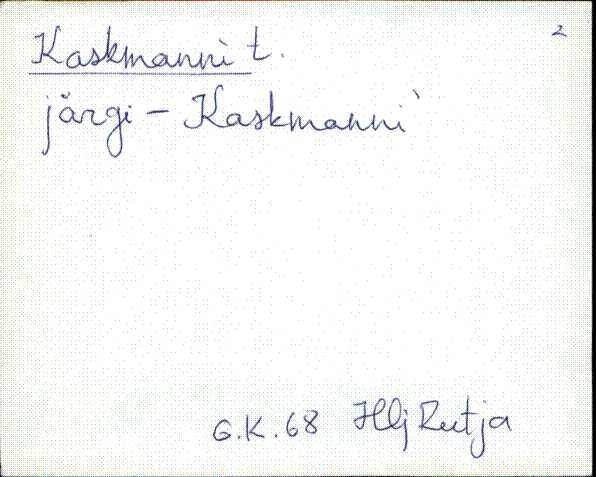 2
Kaskmanni t.
järgi - Kaskmanni
G.K. 68 Hlj Rutja